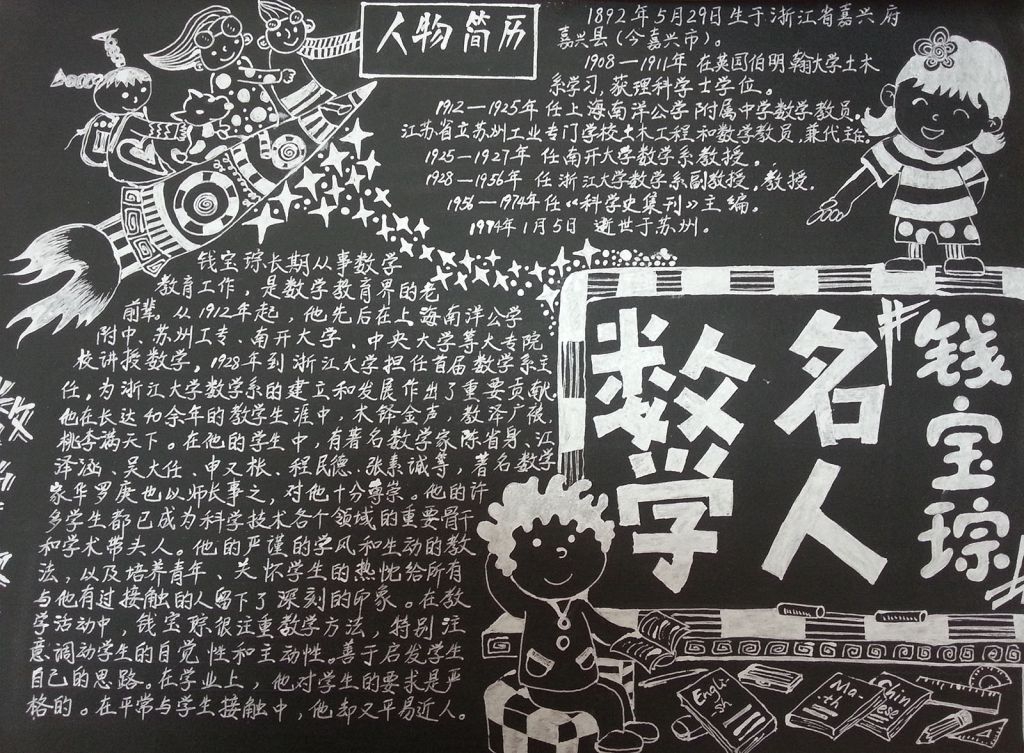 人物简历
1892年5月29日生于浙江省嘉兴府
嘉兴县(今嘉兴市)。
1908—1911年 在英国伯明翰大学土木
系学习,获理科学士学位。
1912—1925年任上海南洋公学附属中学数学教员。
江苏省立苏州工业专门学校土木工程和数学教员,兼代主任。
1925—1927年 任南开大学数学系教授。
1928—1956年 任浙江大学数学系副教授,教授.
1956—1974年任《科学史集刊》主编。
1974年1月5日 逝世于苏州.
钱宝琮长期从事数学
教育工作,是数学教育界的老
前辈。从1912年起,他先后在上海南洋公学
附中、苏州工专、南开大学、中央大学等大专院
校讲授数学,1928年到浙江大学担任首届数学系主
任,为浙江大学数学系的建立和发展作出了重要贡献.
他在长达40余年的教学生涯中,木铎金声,教泽广被,
桃李满天下。在他的学生中,有著名数学家陈省身、江
泽涵、吴大任、申又枨、程民德、张素诚等,著名数学
家华罗庚也以师长事之,对他十分尊崇。他的许
多学生都已成为科学技术各个领域的重要骨干
和学术带头人。他的严谨的学风和生动的教
法,以及培养青年、关怀学生的热忱给所有
与他有过接触的人留下了深刻的印象。在教
学活动中,钱宝琮很注重教学方法,特别注
意调动学生的自觉性和主动性。善于启发学生
自己的思路。在学业上,他对学生的要求是严
格的。在平常与学生接触中,他却又平易近人。
数学
名人
钱宝琮
English
Math
Chinese